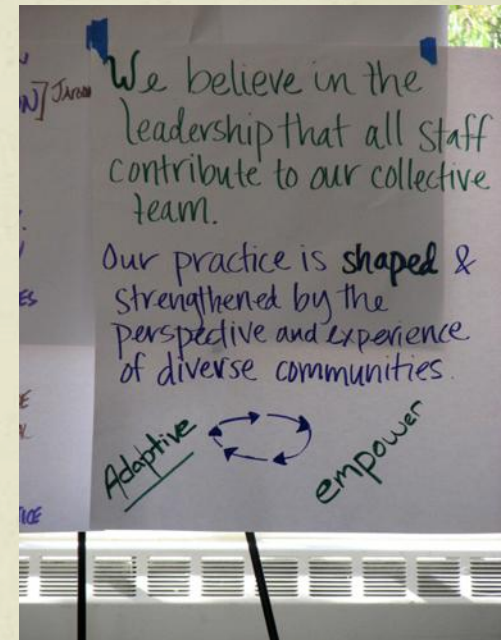 N] Jargon
We believe in the
leadership that all staff
contribute to our collective
team.
Our practice is shaped &
strengthened by the
perspective and experience
of diverse communities.
Adaptive
empower